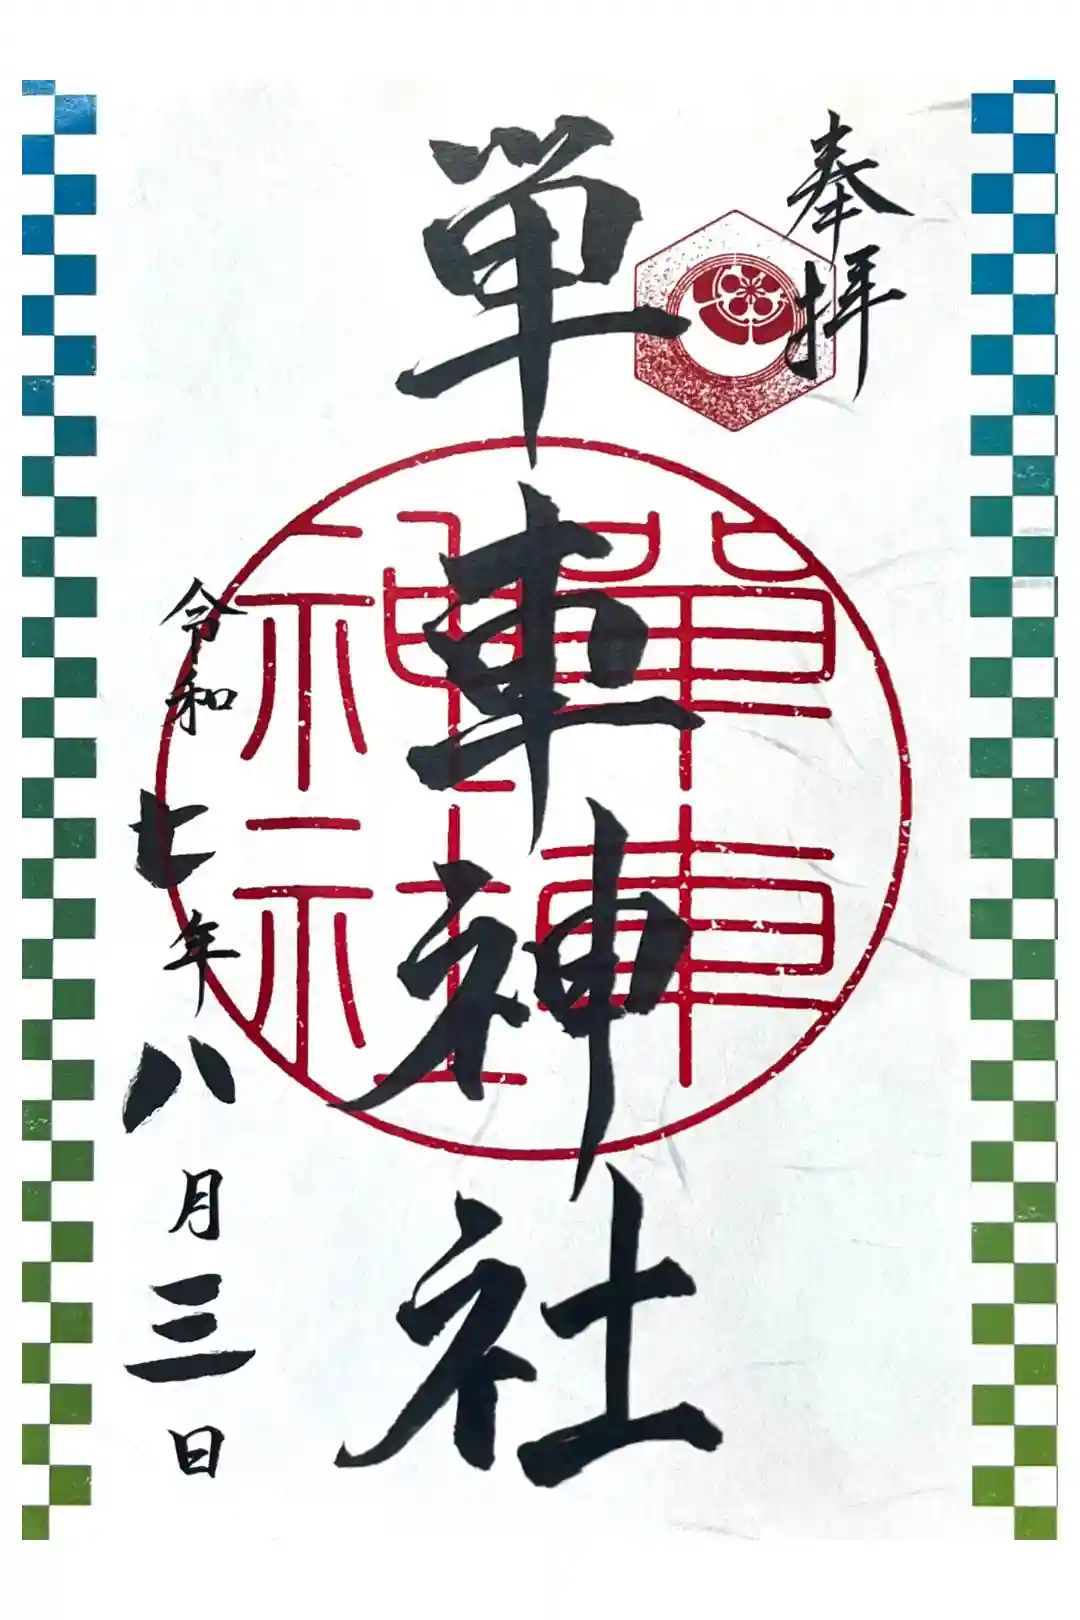 奉拝
単車神社
単車神社
令和七年八月三日